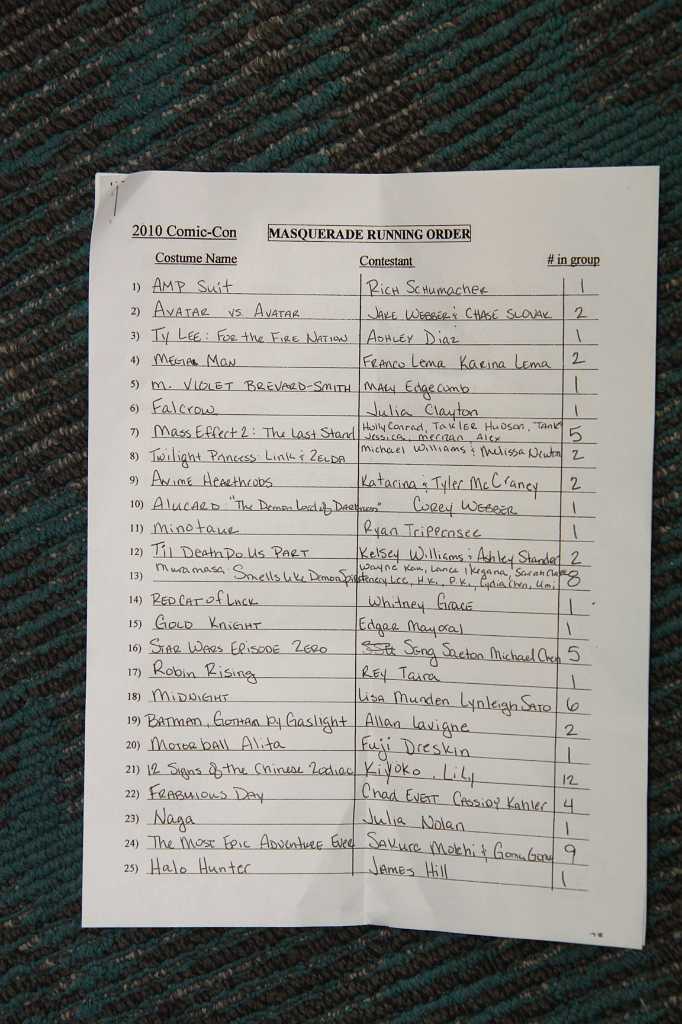 2010 Comic-Con MASQUERADE RUNNING ORDER
Costume Name Contestant # in group
1) AMP Suit Rich Schumacher 1
2) AVATAR VS AVATAR JAKE WEBBER & CHASE SLOVAK 2
3) Ty LEE: FOR the FIRE NATION ASHLEY Diaz 1
4) MEGA MAN FRANCO Lema Karina Lema 2
5) M. VIOLET BREVARD-SMITH MARY Edgecomb 1
6) Falcrow Julia Clayton 1
7) Mass Effect 2: The Last Stand Holly Conrad, Hudson, Tank
Jessica, Meagan, Alex 5
8) Twilight Princess: Link & ZELDA Michael Williams & Melissa Newton 2
9) Anime Hearthrobs Katarina & Tyler McCraney 2
10) Alucard: "The Demon Lord of Darkness" Corey WEBBER 1
11) Minotaur Ryan 1
12) Til Death Do Us PART Kelsey Williams & Ashley Stander 2
13) Muramasa: Smells Like Demon Wayne Kam, Lance Ikegawa, Sarah
Lee, H.K., P.K., Lydia Chen, Umi 8
14) RED CAT of Luck Whitney Grace 1
15) GOLD KNIGHT Edgar Mayoral 1
16) STAR WARS EPISODE ZERO Sing Saeton Michael Chen 5
17) Robin Rising REY Taira 1
18) MIDNIGHT Lisa Munden Lynleigh SATO 6
19) BATMAN, GOTHAM by Gaslight Allan Lavigne 2
20) Motorball Alita Fuji Dreskin 1
21) 12 Signs of the Chinese Zodiac Kiyoko, Lily 12
22) FRABJULOUS DAY Chad EVETT CASSIDY Kahler 4
23) Naga Julia Nolan 1
24) The MOST EPIC ADVENTURE EVER Sakura Mokhi & Gomu Gomu 9
25) Halo Hunter JAMES Hill 1